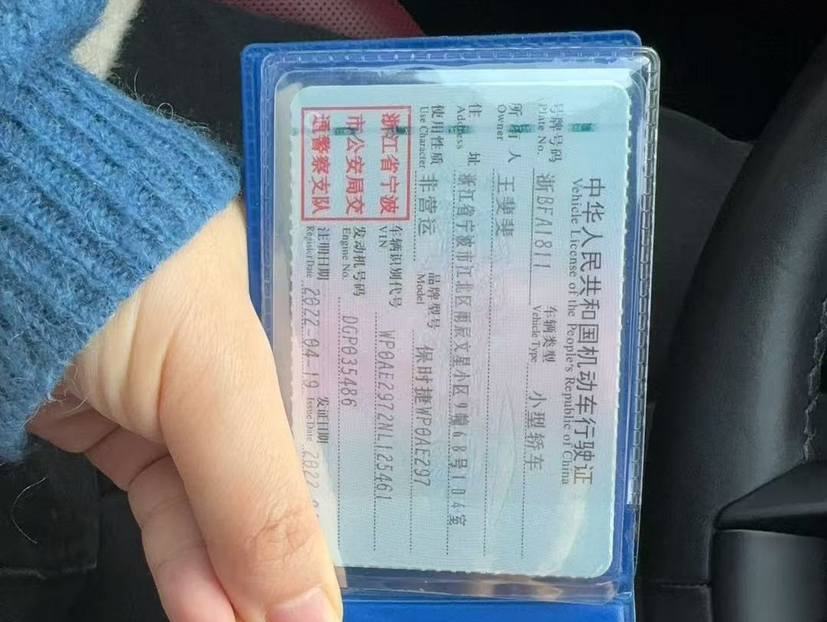 中华人民共和国机动车行驶证
Vehicle License of the People's Republic of China
号牌号码 浙BFA1811 车辆类型 小型轿车
Plate No. Vehicle Type
所有人 王斐斐
Owner
住 址 浙江省宁波市江北区雨辰文星小区9幢68号104室
Address
使用性质 非营运 品牌型号 保时捷WP0AE297
Use Character Model
浙江省宁波
市公安局交
通警察支队
车辆识别代号 WP0AE2972NL125461
VIN
发动机号码 DGP035486
Engine No.
注册日期 2022-04-19 发证日期 2022
Register Date Issue Date